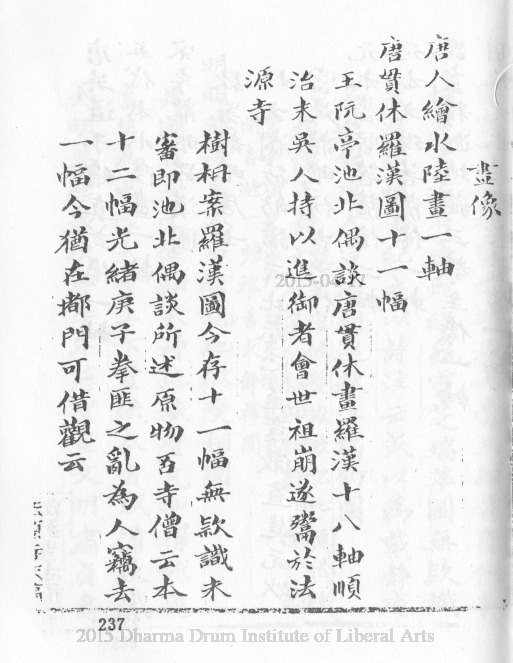 畫像
唐人繪水陸畫一軸
唐貫休羅漢圖十一幅
王阮亭池北偶談唐貫休畫羅漢十八軸順
治末吳人持以進御者會世祖崩遂鬻於法
源寺
樹枏案羅漢圖今存十一幅無欵識未
審即池北偶談所述原物否寺僧云本
十二幅光緒庚子拳匪之亂為人竊去
一幅今猶在都門可借觀云
237
2015 Dharma Drum Institute of Liberal Arts